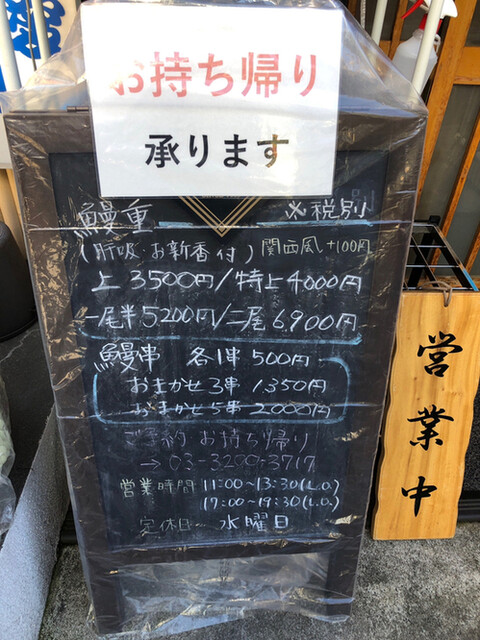 お持ち帰り
承ります
鰻重 ※税別
(肝吸・お新香付) 関西風+100円
上3500円/特上4000円
一尾半5200円/二尾6,900円
鰻串 各1串500円
おまかせ3串1350円
おまかせ5串2000円
ご予約 お持ち帰り
→03-3209-3717
営業時間 11:00~13:30(L.O.)
17:00~19:30(L.O.)
定休日 水曜日
営業中